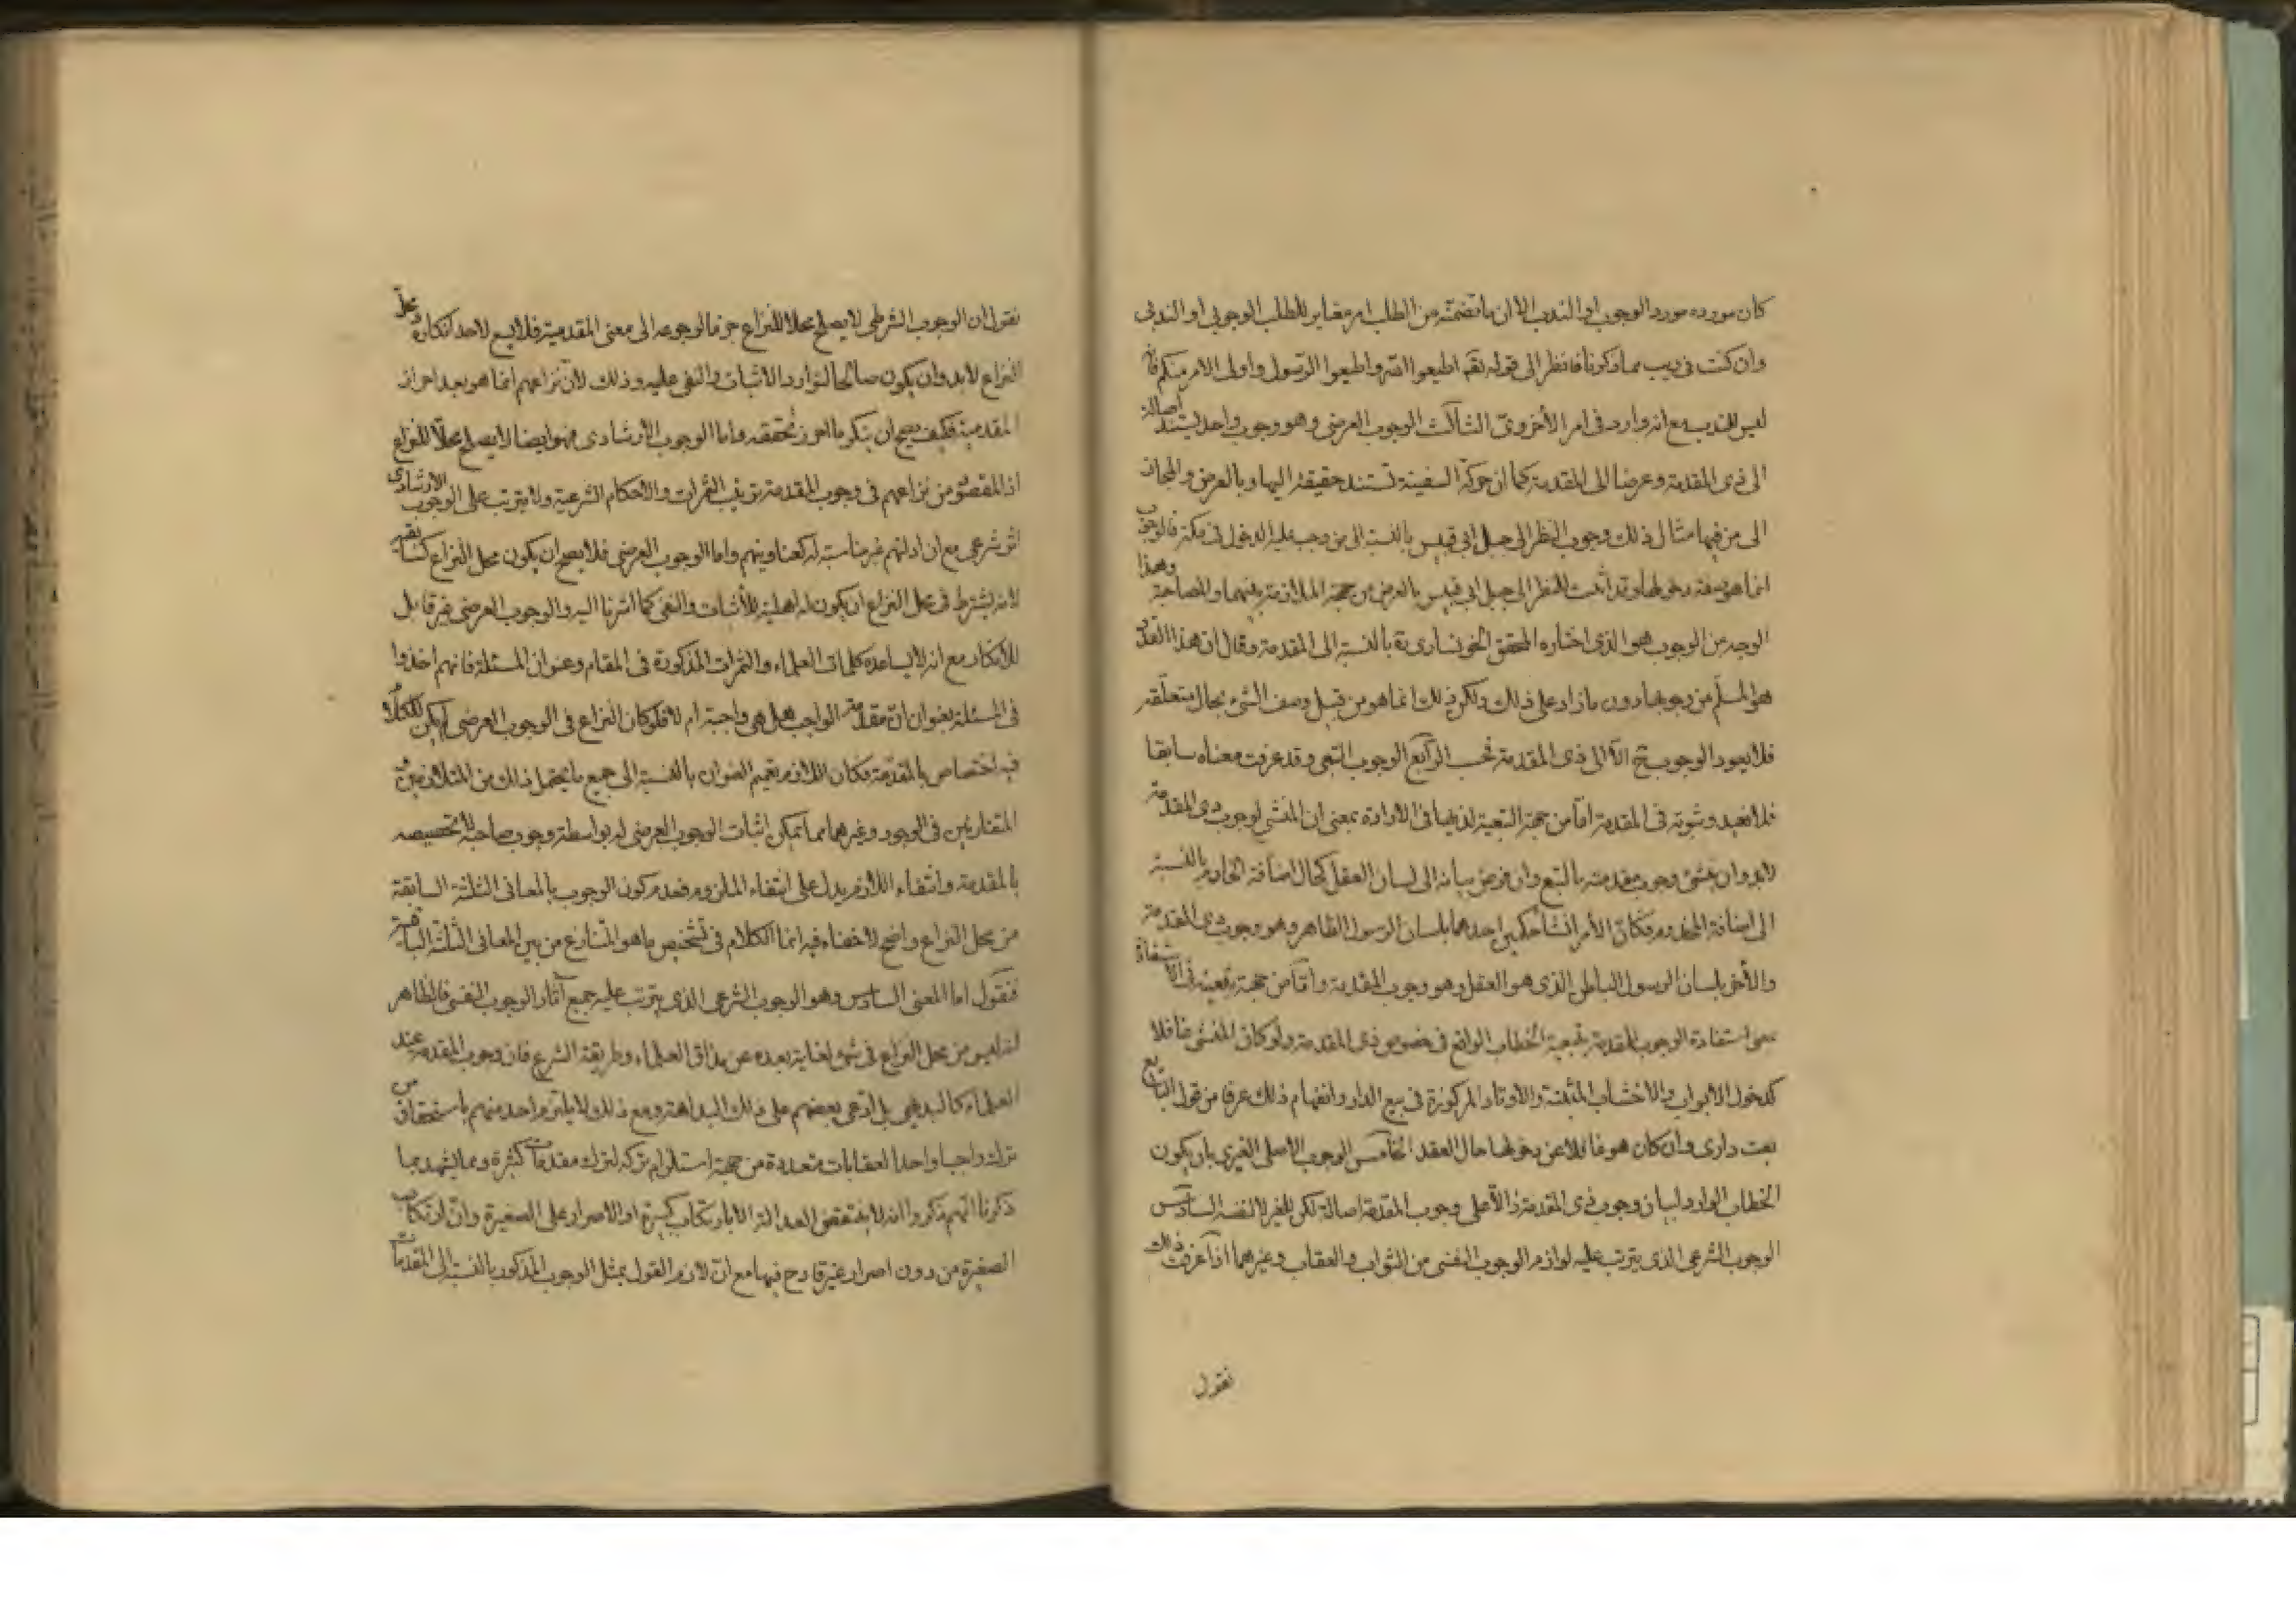 كان مورده مورد الوجوب او الندب الا ان ما تضمنه من الطلب امر مغاير للطلب الوجوبى او الندبى
وان كنت فى ريب مما ذكرنا فانظر الى قوله تقم اطيعوا الله واطيعوا الرسول واولى الامر منكم فانه
ليس للندب مع انه وارد فى امر الأخروى الثالث الوجوب العرضى وهو وجوب واحد يستند اصالة
الى ذى المقدمة وعرضا الى المقدمة كما ان حركة السفينة تستند حقيقة اليها وبالعرض والمجاز
الى من فيها مثال ذلك وجوب النظر الى جبل ابى قبيس بالنسبة الى من وجب عليه الدخول فى مكة فالوجوب
انما هو صفة دخولها وقد اثبت للنظر الى جبل ابى قبيس بالعرض من جهة الملازمة بينهما والمصاحبة وهذا
الوجه من الوجوب هو الذى اختاره المحقق الخونسارى ره بالنسبة الى المقدمة وقال ان هذا القدر
هو المسلم من وجوبها دون ما زاد على ذلك ولكن ذلك انما هو من قبيل وصف الشئ بحال متعلقه
فلا يعود الوجوب ح الا الى ذى المقدمة فحسب الرابع الوجوب التبعى وقد عرفت معناه سابقا
فلا نعيد وثبوته فى المقدمة اما من جهة التبعية لذيها فى الارادة بمعنى ان المنشى لوجوب ذى المقدمة
لابد وان ينشئ وجوب مقدمته بالتبع وان فرض بيانه الى لسان العقل كحال اضافة الخادم بالنسبة
الى اضافة المخدوم فكان الأمر انشأ حكمين احدهما بلسان الرسول الظاهر وهو وجوب ذى المقدمة
والأخر بلسان الرسول الباطنى الذى هو العقل وهو وجوب المقدمة واما من جهة تبعيته فى الاستفادة
بمعنى استفادة الوجوب للمقدمة بتبعية الخطاب الواقع فى خصوص ذى المقدمة ولو كان المنشى غافلا
كدخول الابواب والاخشاب المثبتة والاوتاد المركوزة فى بيع الدار وانفهام ذلك عرفا من قول البايع
بعت دارى وان كان هو غافلا عن دخولها حال العقد الخامس الوجوب الاصلى الغيرى بان يكون
الخطاب الوارد لبيان وجوب ذى المقدمة دالا على وجوب المقدمة اصالة لكن للغير لا لنفسه السادس
الوجوب الشرعى الذى يترتب عليه لوازم الوجوب النفسى من الثواب والعقاب وغيرهما اذا عرفت ذلك
نقول
نقول ان الوجوب الشرطى لا يصلح محلا للنزاع جزما لرجوعه الى معنى المقدمية فلا يسع لاحد انكاره ومحل
النزاع لابد وان يكون صالحا لتوارد الاثبات والنفى عليه وذلك لان نزاعهم انما هو بعد احراز
المقدمية فكيف يصح ان ينكر ما احرز تحققه واما الوجوب الارشادى فهو ايضا لا يصلح محلا للنزاع
اذ المقصود من نزاعهم فى وجوب المقدمة ترتيب الثمرات والاحكام الشرعية ولا يترتب على الوجوب الارشادى
اثر شرعى مع ان ادلتهم غير مناسبة له كعناوينهم واما الوجوب العرضى فلا يصح ان يكون محل النزاع كسابقه
لانه يشترط فى محل النزاع ان يكون له اهلية للأثبات والنفى كما اشرنا اليه والوجوب العرضى غير قابل
للانكار مع انه لا يساعده كلمات العلماء والثمرات المذكورة فى المقام وعنوان المسئلة فانهم اخذوا
فى المسئلة بعنوان ان مقدمة الواجب هل هى واجبة ام لا فلو كان النزاع فى الوجوب العرضى لم يكن للكلام
فيه اختصاص بالمقدمة فكان اللازم تعميم العنوان بالنسبة الى جميع ما يحتمل ذلك من المتلازمين و
المتقارنين فى الوجود وغيرهما مما يمكن اثبات الوجوب العرضى له بواسطة وجوب صاحبه لا تخصيصه
بالمقدمة وانتفاء اللازم يدل على انتفاء الملزوم فعدم كون الوجوب بالمعانى الثلثة السابقة
من محل النزاع واضح لا خفاء فيه انما الكلام فى تشخيص ما هو المتنازع من بين المعانى الثلثة الباقية
فنقول اما المعنى السادس وهو الوجوب الشرعى الذى يترتب عليه جميع آثار الوجوب النفسى فالظاهر
انه ليس من محل النزاع فى شئ لغاية بعده عن مذاق العلماء وطريقة الشرع فان وجوب المقدمة عند
العلماء كالبديهى بل ادعى بعضهم على ذلك البداهة ومع ذلك لا يلتزم احد منهم باستحقاق من
ترك واجبا واحدا لعقابات متعددة من جهة استلزام تركه لترك مقدمات كثيرة ومما يشهد بما
ذكرنا انهم ذكروا انه لا ينتقض العدالة الا بارتكاب كبيرة او الاصرار على الصغيرة وان ارتكاب
الصغيرة من دون اصرار غير قادح فيها مع ان لازم القول بمثل الوجوب المذكور بالنسبة الى المقدمات